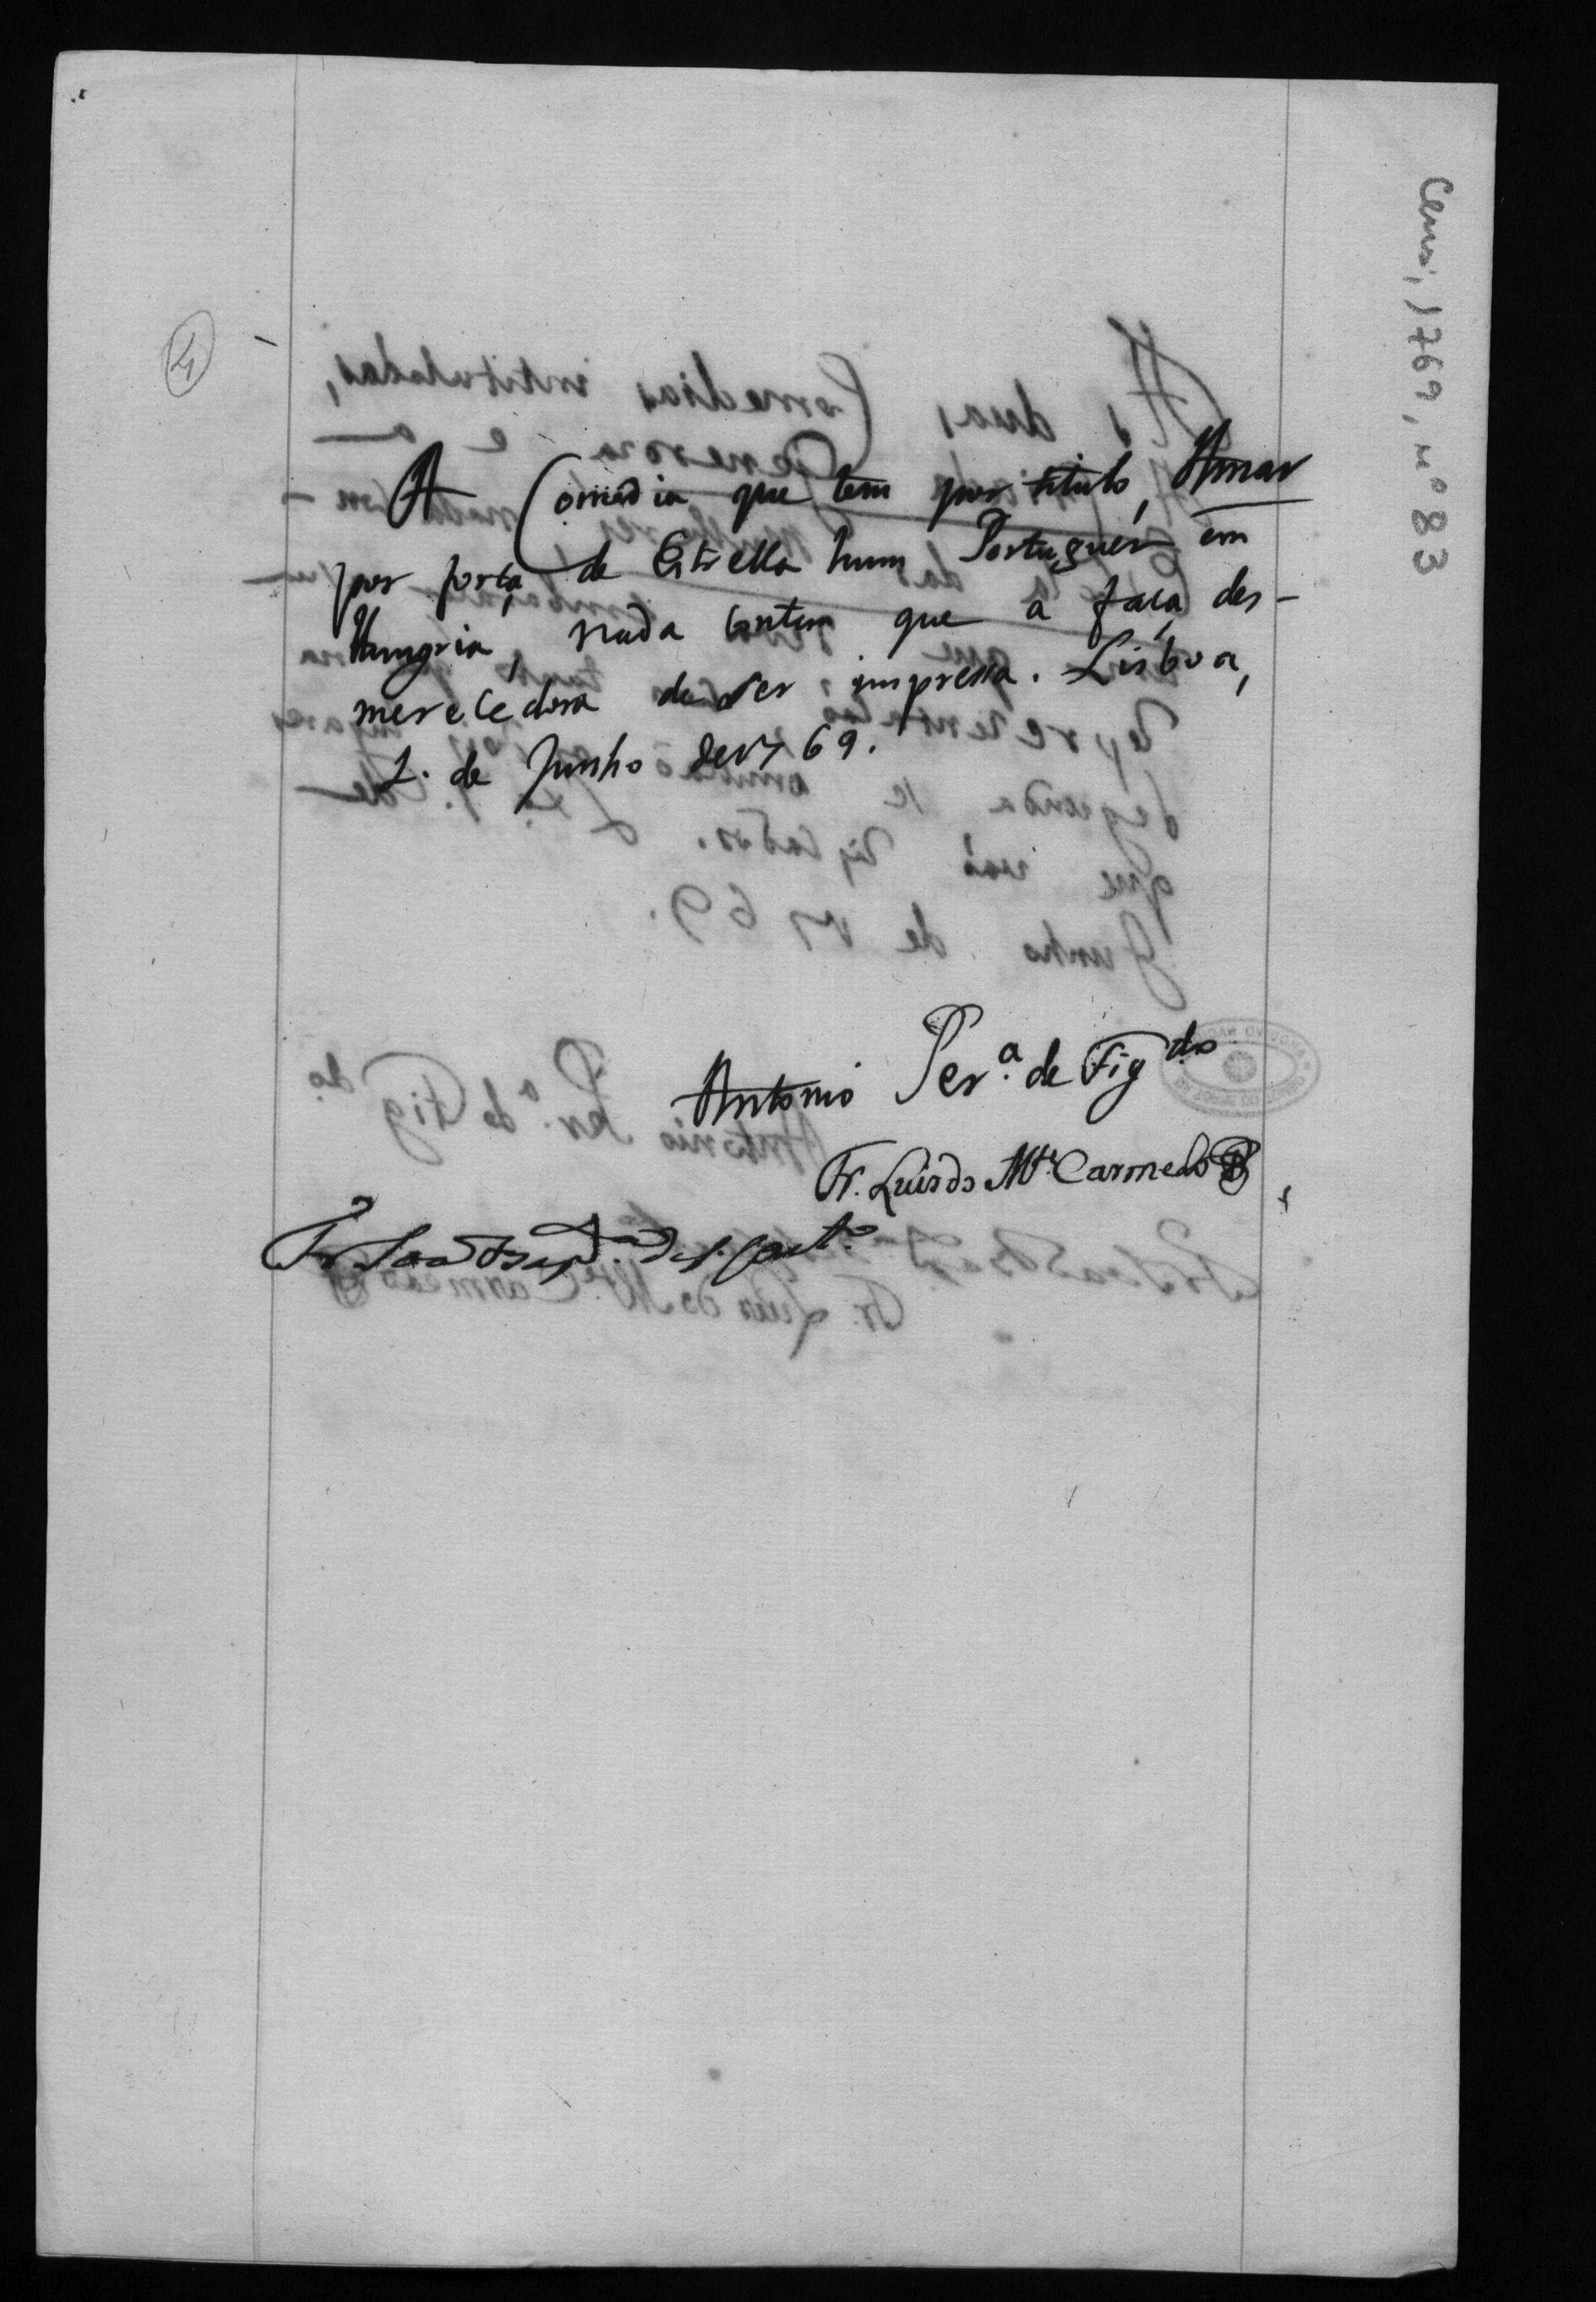 Cens., 1769, nº 83
4
A Comedia que tem por titulo, Amar
por força de Estrella hum Portuguez em
Hungria, nada contem que a faça des-
merecedora de ser impressa. Lisboa,
1. de Junho de 1769.
Antonio Per.ª de Fig.do
Fr. Luis do Mte. Carmelo
Fr. Joaõ Bap.ta de S. Caet.º